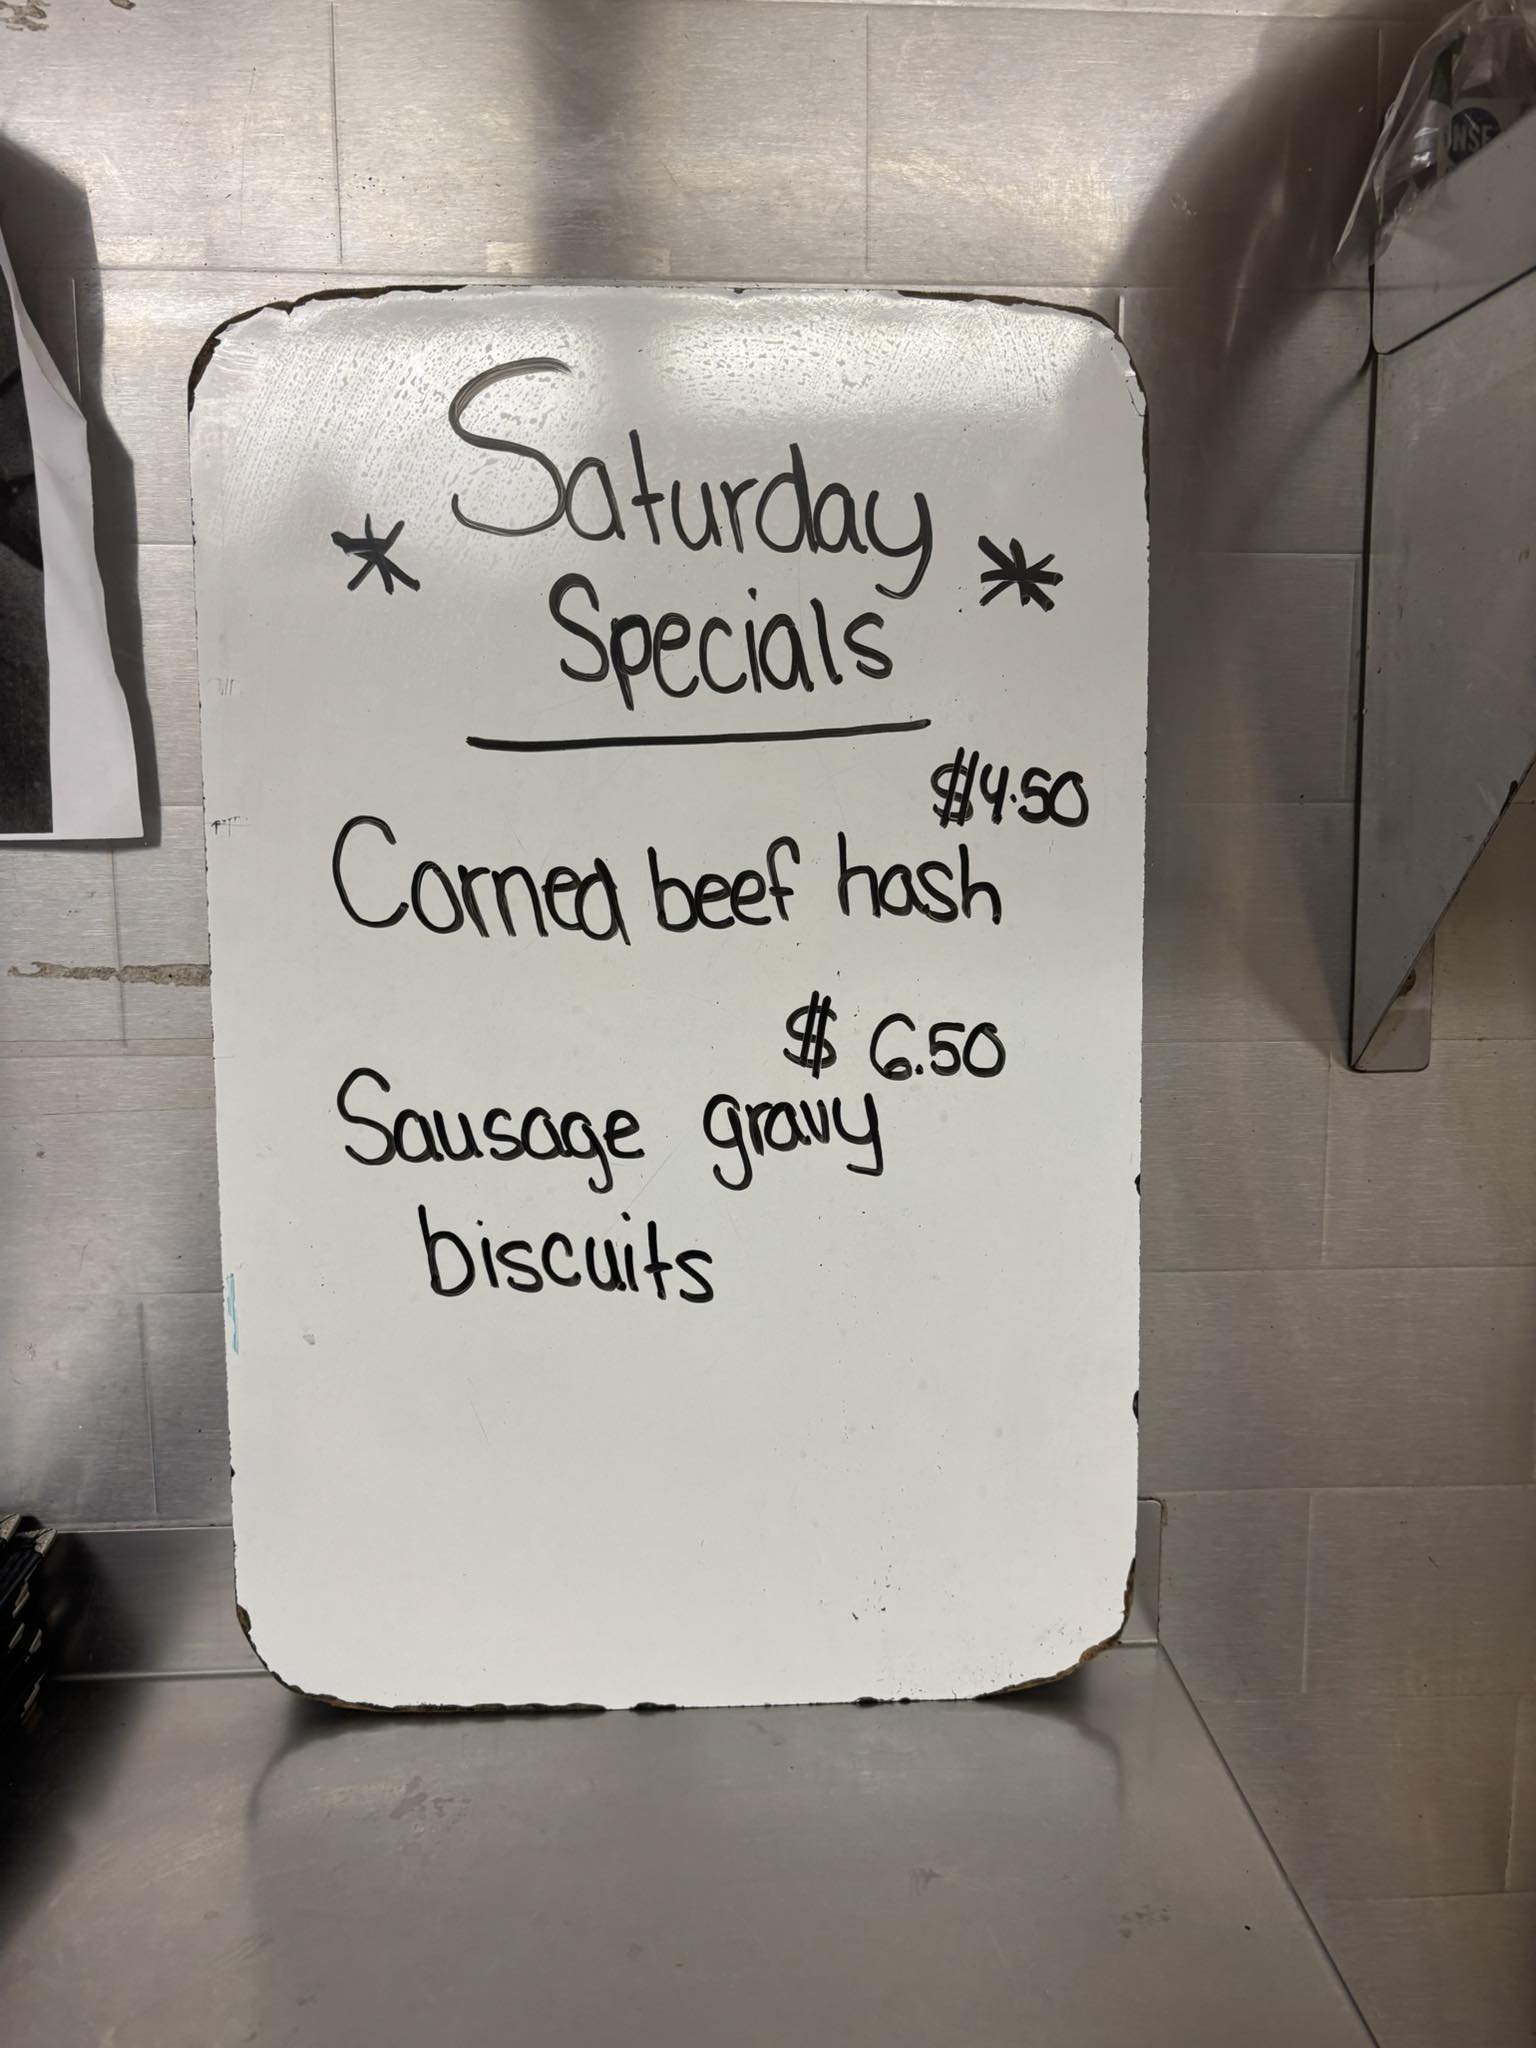 * Saturday *
Specials
$4.50
Corned beef hash
$ 6.50
Sausage gravy
biscuits
NSF